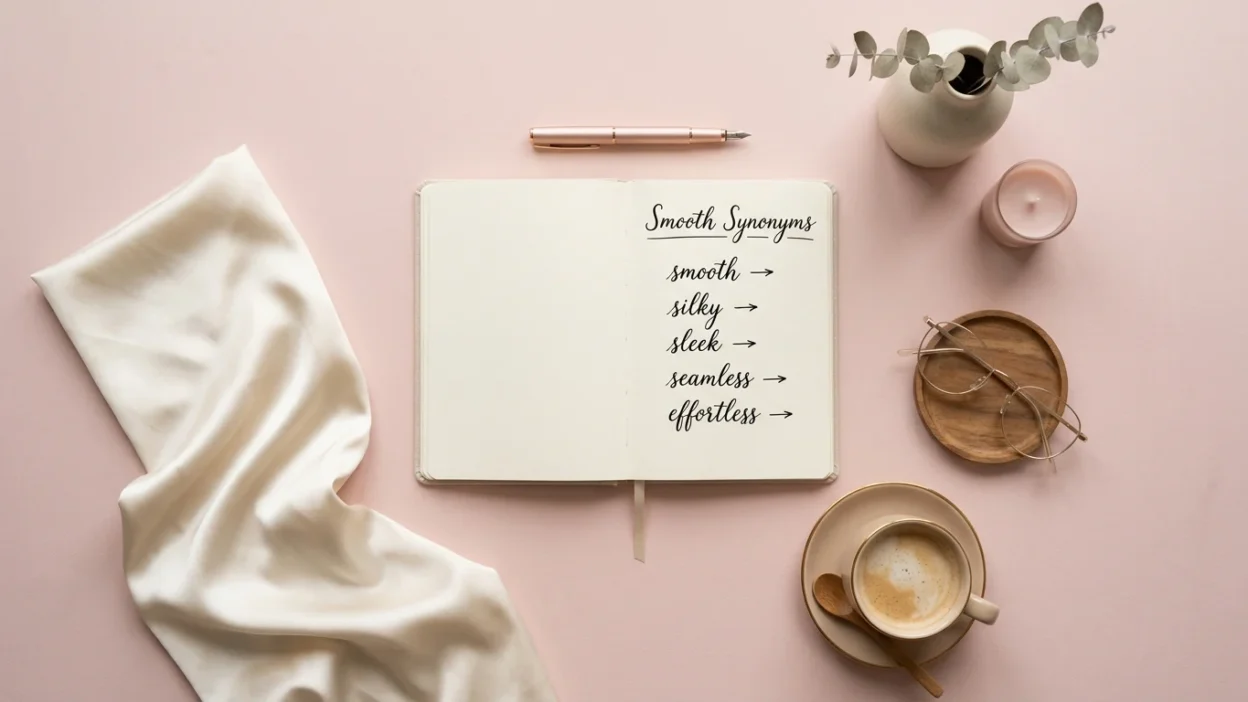 Smooth Synonyms
smooth →
silky →
sleek →
seamless →
effortless →